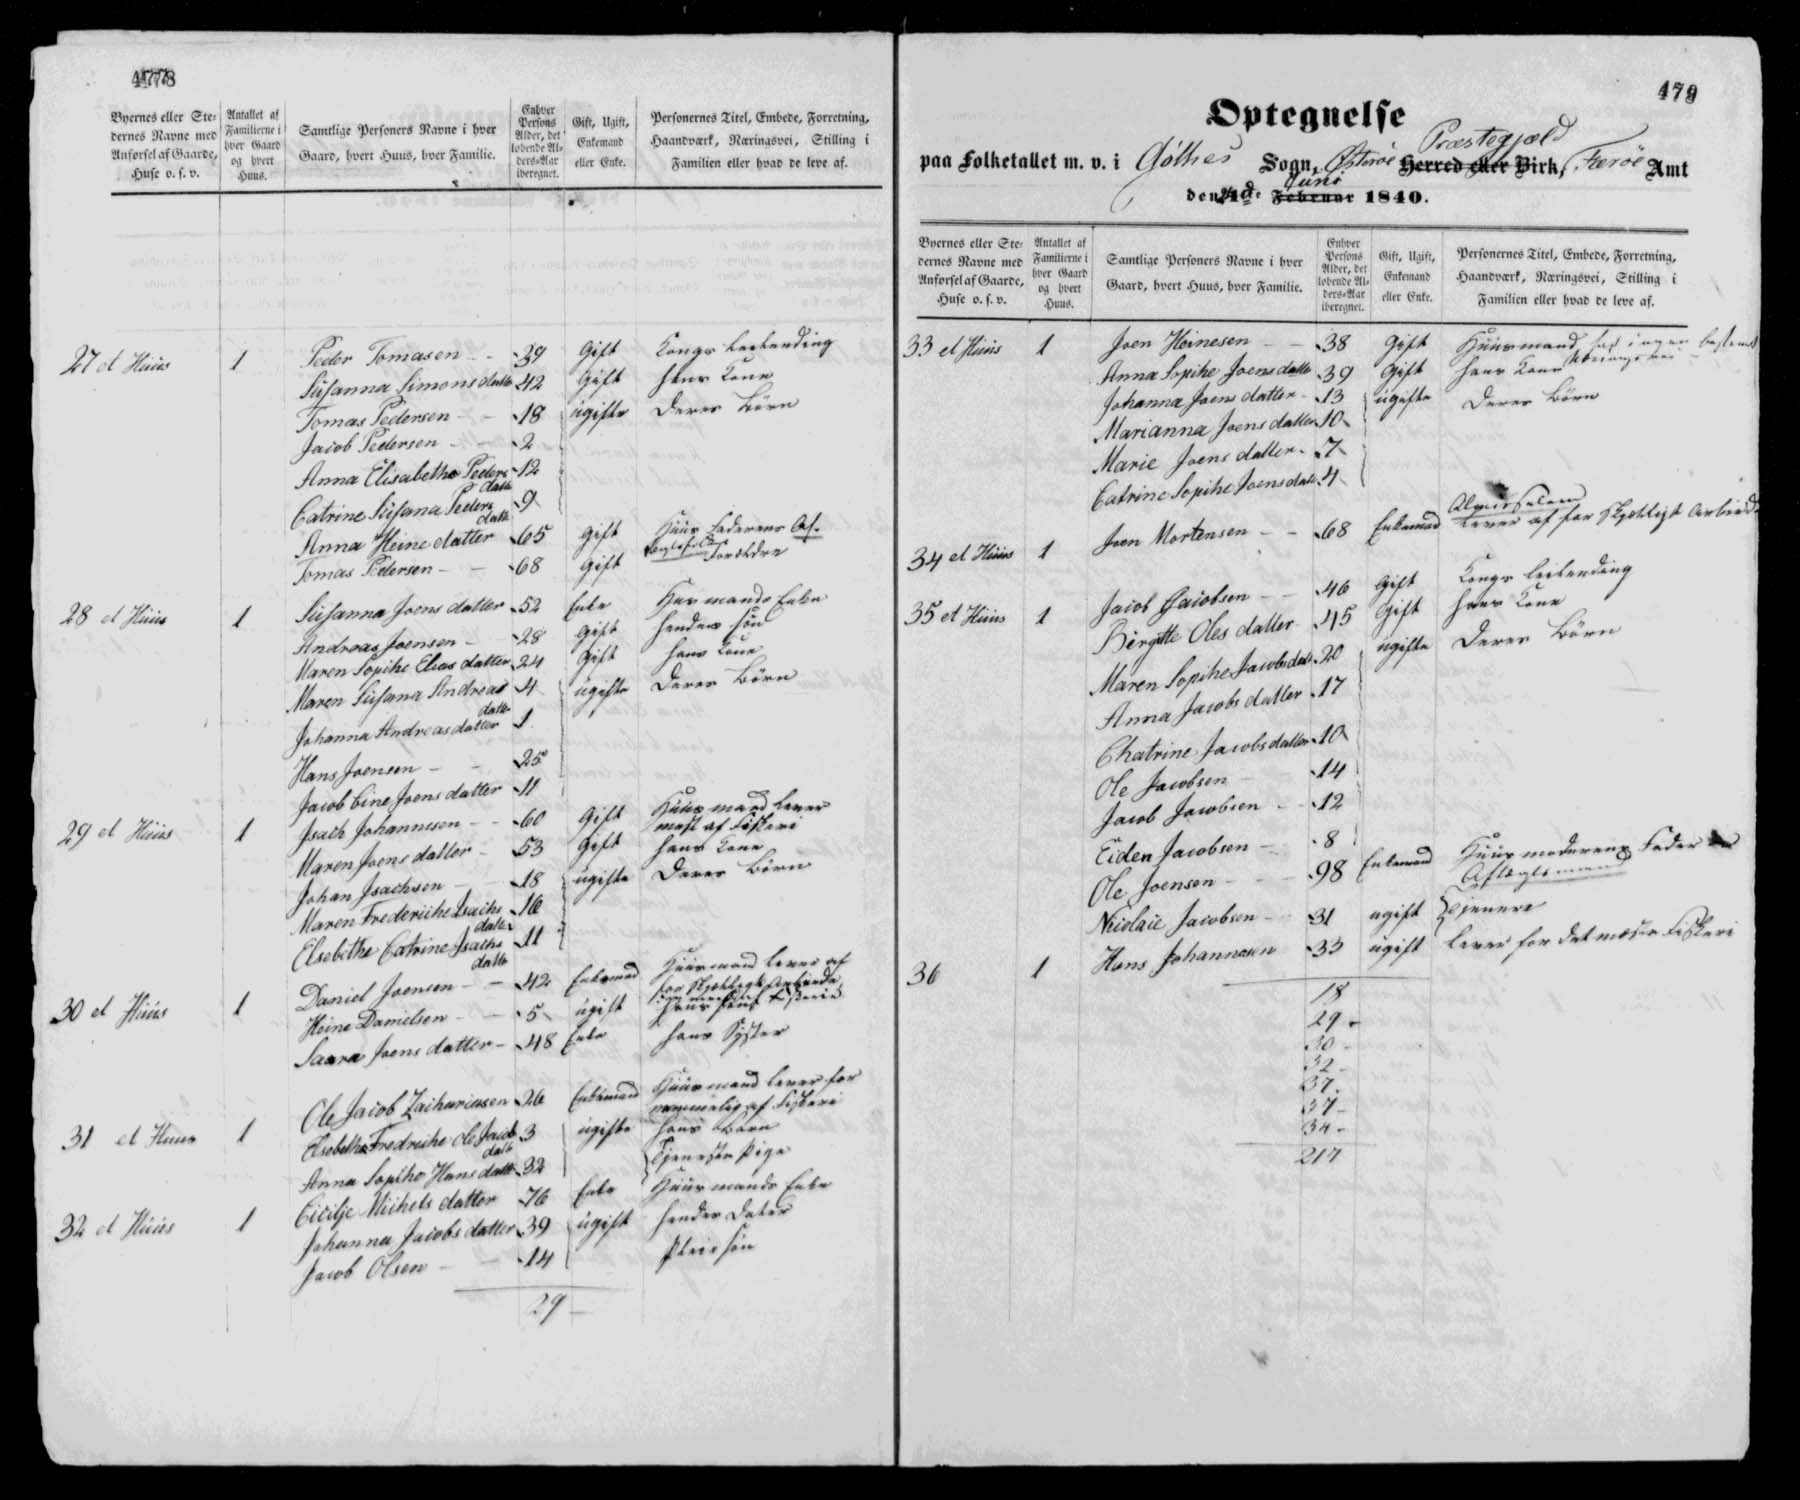 478
Byernes eller Ste- dernes Navne med Anførsel af Gaarde, Huse o. s. v. | Antallet af Familierne i hver Gaard og hvert Huus. | Samtlige Personers Navne i hver Gaard, hvert Huus, hver Familie. | Enhver Persons Alder, det løbende Al- ders-Aar iberegnet. | Gift, Ugift, Enkemand eller Enke. | Personernes Titel, Embede, Forretning, Haandværk, Næringsvei, Stilling i Familien eller hvad de leve af.
27 et Hüüs 1 Peder Tomasen 39 Gift Kongs leilending
Süsanna Simons datter 42 Gift hans Kone
Tomas Pedersen 18 ügifte Deres Börn
Jacob Pedersen 2
Anna Elisabethe Peders datt 12
Catrine Süsana Peders datt 9
Anna Heine datter 65 Gift
Tomas Pedersen 68 Gift
28 et Hüüs 1 Süsanna Joens datter 52 Enke Huusmands Enke
Andreas Joensen 28 Gift hendes søn
Maren Sopihe Elias datter 24 Gift hans Kone
Maren Süsana Andreas datter 4 ügifte Deres Börn
Johanna Andreas datter 1
Hans Joensen 25
Jacob Cine Joens datter 11
29 et Hüüs 1 Isach Johannesen 60 Gift Huusmand lever mest af Fiskeri
Maren Joens datter 53 Gift hans Kone
Johan Isachsen 18 ügifte Deres Börn
Maren Frederiche Isachs datter 16
Elsebethe Catrine Isachs datte 11
30 et Hüüs 1 Daniel Joensen 42 Enkemand Huusmand lever af
Heine Danielsen 5 ügift hans søn
Saara Joens datter 48 Enke hans Syster
31 et Huus 1 Ole Jacob Zachariasen 26 Enkemand Huusmand lever for nemmelig af Fiskeri
Elsebethe Fredriche Ole Jacob datt 3 ügifte hans Barn
Anna Sophe Hans datt 32 Tjeneste Pige
32 et Hüüs 1 Cicilje Michels datter 76 Enke Huusmands Enke
Johanna Jacobs datter 39 ügift hendes Dater
Jacob Olsen 14 Pleie søn
29
479
Optegnelse
paa Folketallet m. v. i Göthes Sogn, Österöe Herred eller Birk, Præstegjæld Færöe Amt
den 1de Februar Juni 1840.
Byernes eller Ste- dernes Navne med Anførsel af Gaarde, Huse o. s. v. | Antallet af Familierne i hver Gaard og hvert Huus. | Samtlige Personers Navne i hver Gaard, hvert Huus, hver Familie. | Enhver Persons Alder, det løbende Al- ders-Aar iberegnet. | Gift, Ugift, Enkemand eller Enke. | Personernes Titel, Embede, Forretning, Haandværk, Næringsvei, Stilling i Familien eller hvad de leve af.
33 et Hüüs 1 Joen Heinesen 38 Gift Huusmand har ingen bestemt
Anna Sopihe Joens datte 39 Gift hans Kone
Johanna Joens datter 13 ügifte Deres Börn
Marianna Joens datter 10
Marie Joens datter 7
Catrine Sopihe Joens datt 4
34 et Hüüs 1 Joen Mortensen 68 Enkemand lever af for Skjelligt Arbeide
35 et Hüüs 1 Jacob Jacobsen 46 Gift Kongs leilending
Birgitte Oles datter 45 Gift hans Kone
Maren Sopihe Jacobs datt 20 ügifte Deres Börn
Anna Jacobs datter 17
Chatrine Jacobs datter 10
Ole Jacobsen 14
Jacob Jacobsen 12
Eiden Jacobsen 8
Ole Joensen 98 Enkemand Huusmoderens Fader Aftægtsmand
Nicolaie Jacobsen 31 ugift Tjenere
36 1 Hans Johannesen 33 ugift lever for det meste Fiskeri
18
29
30
32
37
37
34
217